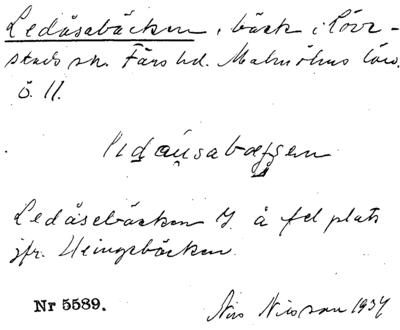 Ledåsabäcken, bäck i Lövestads sn. Färs hd. Malmöhus län.
ö. 11.
Ledåsebäcken J. å fel plats
jfr. Heingebäcken.
Nr 5589.
Nils Nilsson 1934